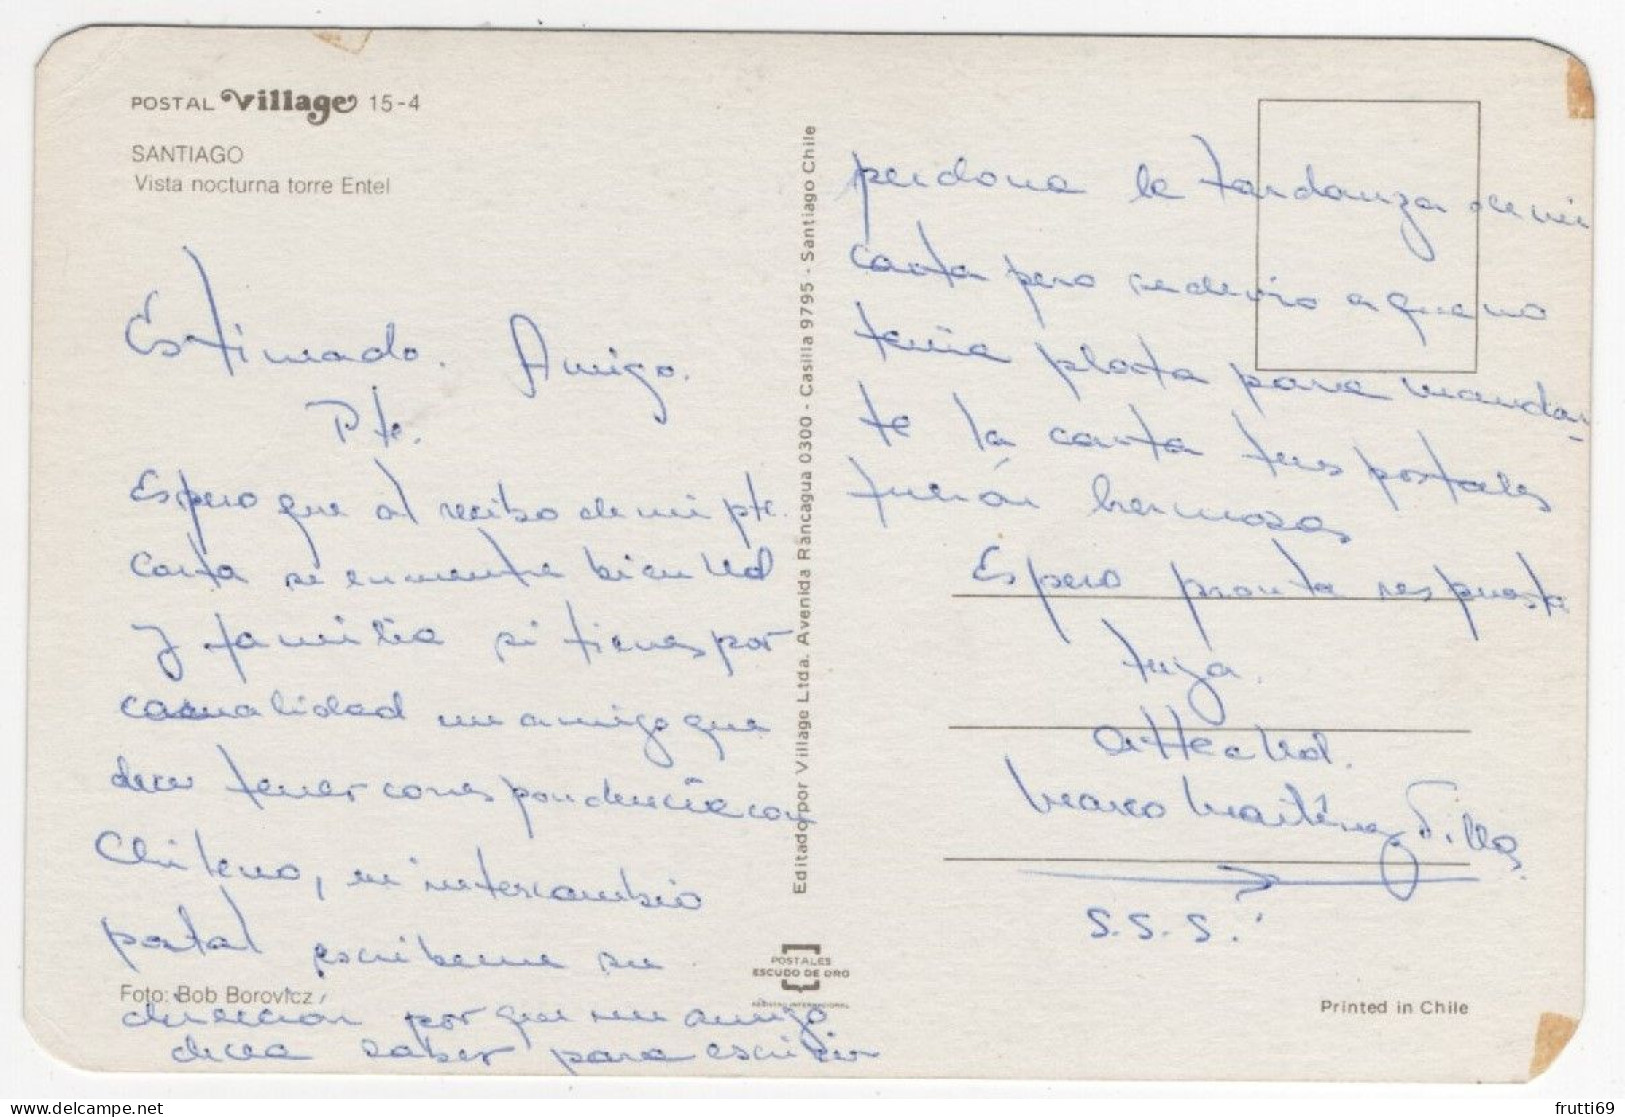 POSTAL Village 15-4
SANTIAGO
Vista nocturna torre Entel
Estimado. Amigo.
Pte.
Espero que al recibo de mi pte.
carta se encuentre bien Ud
y familia si tienes por
casualidad un amigo que
dece tener correspondencia con
Chileno, en intercambio
postal escribeme su
dirección por que un amigo
decea saber para escribir
Foto: Bob Borovicz
Editado por Village Ltda. Avenida Rancagua 0300 - Casilla 9795 - Santiago Chile
POSTALES
ESCUDO DE ORO
REGISTRO INTERNACIONAL
perdona la tardanza de mi
carta pero se devio a que no
tenia plata para mandar-
te la carta tus postales
fuerón hermosas
Espero pronta respuesta
tuya.
Atte a Ud.
Marco Martínez
S.S.S.
Printed in Chile
frutti69